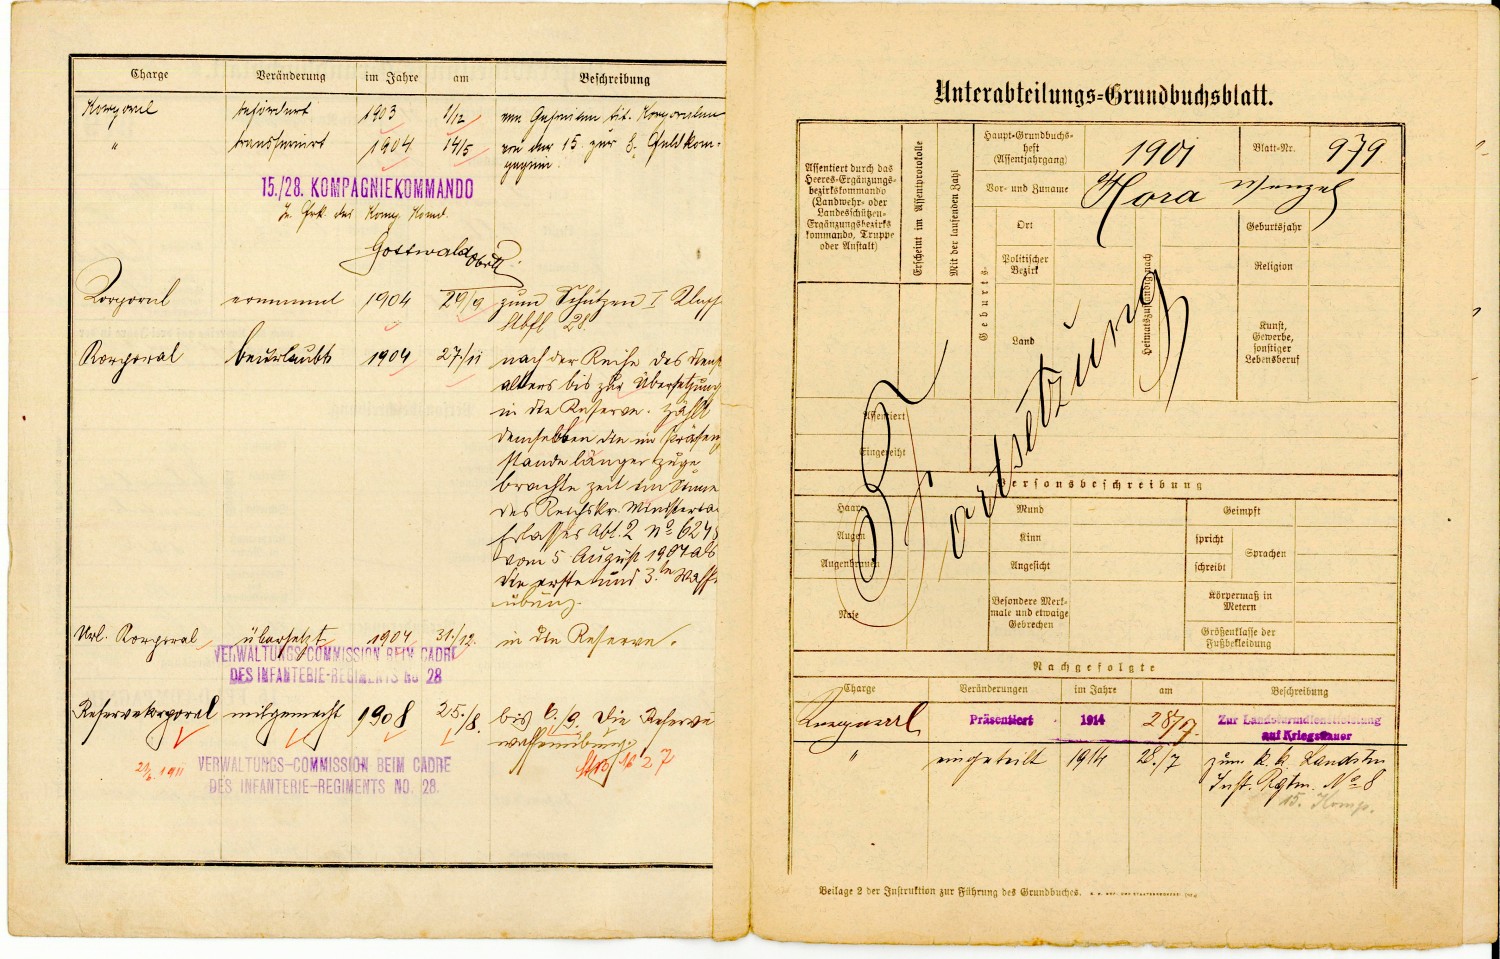 Charge Veränderung im Jahre am Beschreibung
Korporal befördert 1903 1/12 zum Korporalen
" transferiert 1904 14/5 von der 15. zur 8. Feldkom-
pagnie.
15./28. KOMPAGNIEKOMMANDO
des Komp. Komd.
Gottwald Obrlt
Korporal ernannt 1904 29/9 zum Schützen I Klasse
28.
Korporal beurlaubt 1904 27./11 nach der Reihe des Dienst
alters bis zur Übersetzung
in die Reserve. Zählt
demselben die im Präsenz
stande länger zuge
brachte Zeit im Sinne
des Reichskr. Ministerial
Erlasses Abt. 2 No 624
vom 5 August 1904 als
die erste und 3.te Waffen
übung.
Url. Korporal übersetzt 1904 31./12. in die Reserve.
VERWALTUNGS-COMMISSION BEIM CADRE
DES INFANTERIE-REGIMENTS No 28
Reservekorporal mitgemacht 1908 25./8. bis 6./9. die Reserve
waffenübung.
1911 27
VERWALTUNGS-COMMISSION BEIM CADRE
DES INFANTERIE-REGIMENTS NO. 28.
Unterabteilungs-Grundbuchsblatt.
Assentiert durch das
Heeres-Ergänzungs-
bezirkskommando
(Landwehr- oder
Landesschützen-
Ergänzungsbezirks
kommando, Truppe
oder Anstalt)
Erscheint im Assentprotokolle
Mit der laufenden Zahl
Haupt-Grundbuchs-
heft
(Assentjahrgang)
1901
Blatt-Nr. 979.
Vor- und Zuname Hora Wenzel
Geburts-
Ort
Politischer
Bezirk
Land
Heimatszuständig nach
Geburtsjahr
Religion
Kunst,
Gewerbe,
sonstiger
Lebensberuf
Assentiert
Eingereiht
Fortsetzung
Personsbeschreibung
Haare Mund Geimpft
Augen Kinn spricht Sprachen
Augenbrauen Angesicht schreibt
Nase
Besondere Merk-
male und etwaige
Gebrechen
Körpermaß in
Metern
Größenklasse der
Fußbekleidung
Nachgefolgte
Charge Veränderungen im Jahre am Beschreibung
Korporal Präsentiert 1914 28/7. Zur Landsturmdienstleistung
auf Kriegsdauer
" eingeteilt 1914 28./7 zum k. k. Landstm
Inft. Rgtm. No 8
15. Komp.
Beilage 2 der Instruktion zur Führung des Grundbuches.